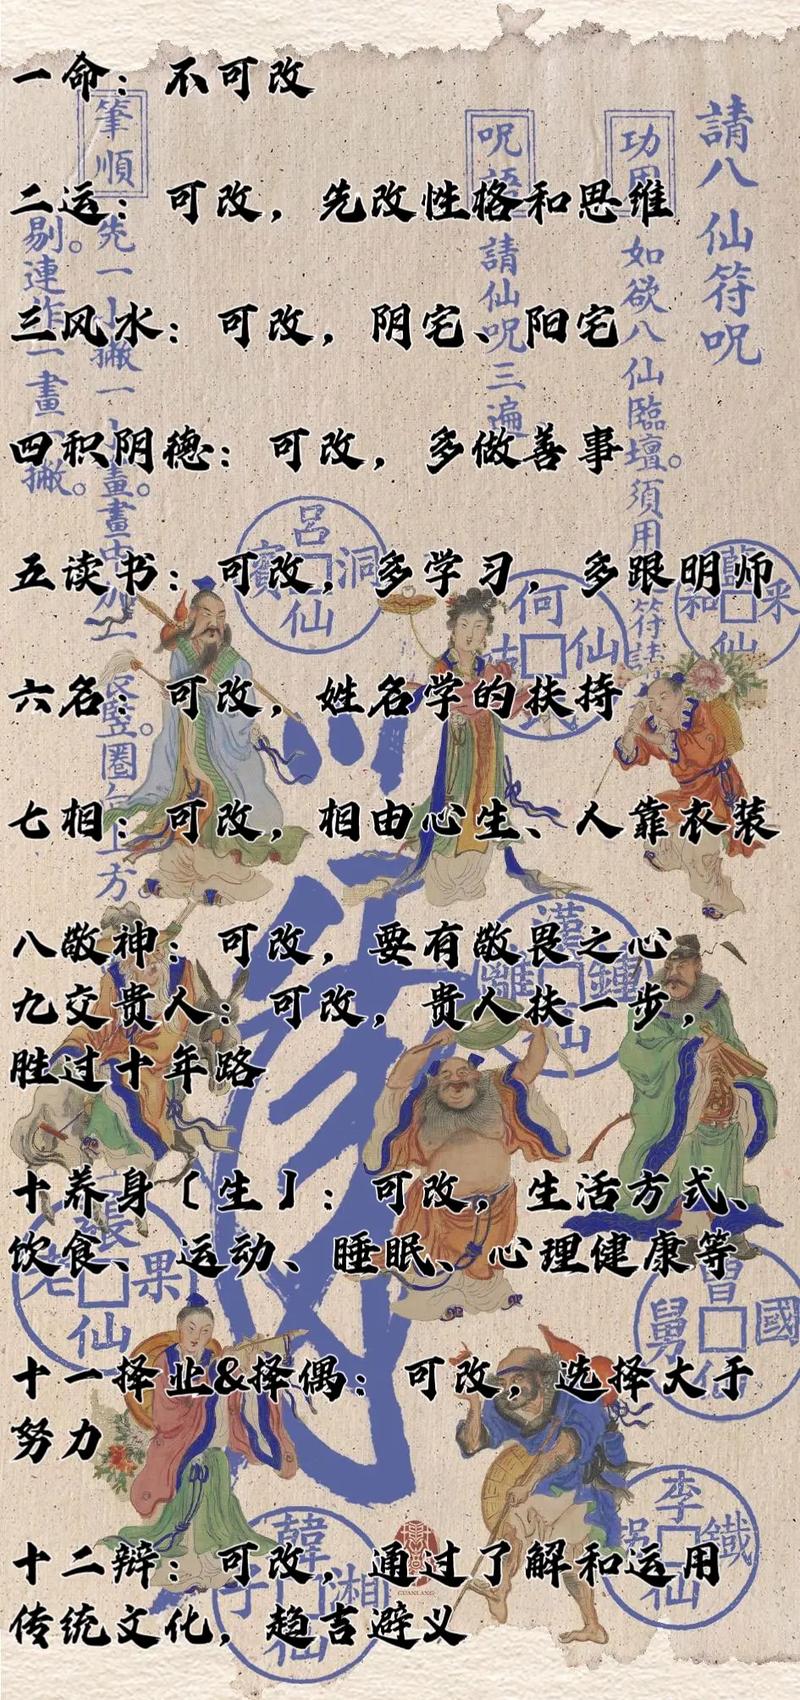 一命：不可改
二运：可改，先改性格和思维
三风水：可改，阴宅、阳宅
四积阴德：可改，多做善事
五读书：可改，多学习，多跟明师
六名：可改，姓名学的扶持
七相：可改，相由心生、人靠衣装
八敬神：可改，要有敬畏之心
九交贵人：可改，贵人扶一步，
胜过十年路
十养身〔生】：可改，生活方式、
饮食、运动、睡眠、心理健康等
十一择业&择偶：可改，选择大于
努力
十二辩：可改，通过了解和运用
传统文化，趋吉避义
請八仙符呪
如欲八仙臨壇。須用
請仙呪三遍
筆順
呂洞賓仙
何仙
漢鍾離仙
張果老仙
曹國舅仙
韓湘子仙
李鐵拐仙
GUANLANG